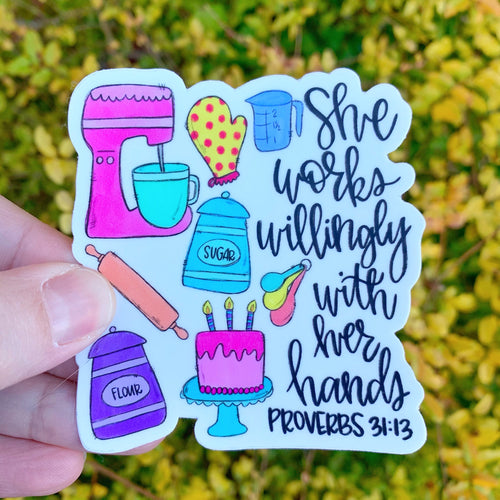 She
works
willingly
with
her
hands
PROVERBS 31:13
SUGAR
FLOUR
2
1½
1